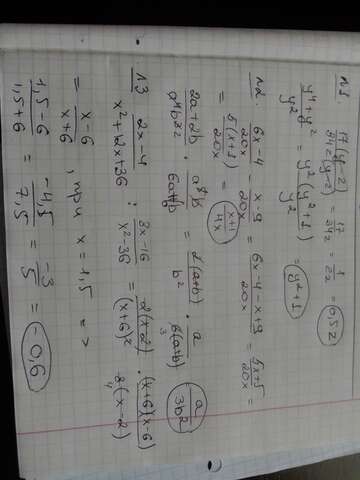 №1. 17(y-2)/34z(y-2) = 17/34z = 1/2z = 0,5z
y⁴+y²/y² = y²(y²+1)/y² = y²+1
№2. 6x-4/20x - x-9/20x = 6x-4-x+9/20x = 5x+5/20x =
= 5(x+1)/20x = x+1/4x
2a+2b / b³ · a⁴b/6a+6b = 2(a+b)/b² · a/6(a+b) 3 a/3b²
№3 2x-4/x²+12x+36 : 8x-16/x²-36 = 2(x-2)/(x+6)² · (x+6)(x-6)/8(x-2) 4
= x-6/x+6, при x=1,5 =>
1,5-6/1,5+6 = -4,5/7,5 = -3/5 = -0,6